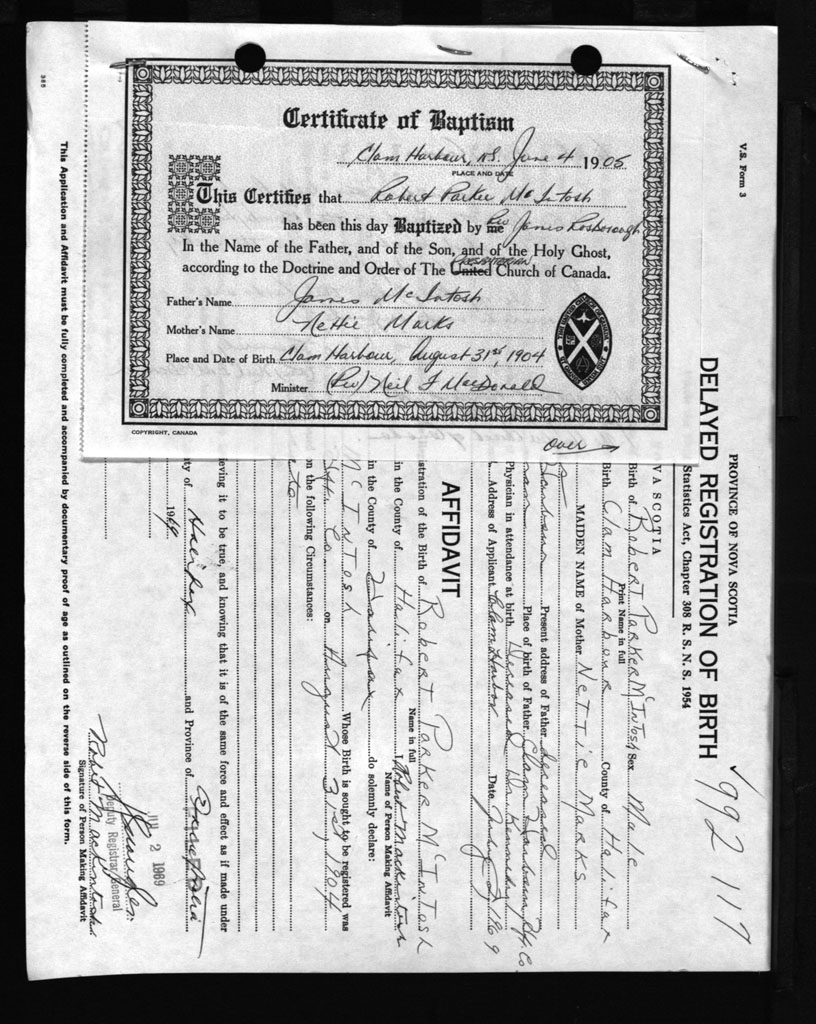 Certificate of Baptism
Clam Harbour, N.S. June 4 1905
PLACE AND DATE
This Certifies that Robert Parker McIntosh
has been this day Baptized by me Rev James Rosborough
In the Name of the Father, and of the Son, and of the Holy Ghost,
PRESBYTERIAN
according to the Doctrine and Order of The United Church of Canada.
Father's Name James McIntosh
Mother's Name Nettie Marks
Place and Date of Birth Clam Harbour, August 31st, 1904
Minister (Rev) Neil F MacDonald
COPYRIGHT, CANADA
over
V.S. Form 3
PROVINCE OF NOVA SCOTIA
DELAYED REGISTRATION OF BIRTH
Statistics Act, Chapter 308 R. S. N. S. 1954
992 117
VA SCOTIA
Birth of Robert Parker McIntosh Sex Male
Print Name in full
Birth Clam Harbour County of Halifax
MAIDEN NAME of Mother Nettie Marks
Harbour Present address of Father deceased
Place of birth of Father Clam Harbour Hx. Co
Physician in attendance at birth Deceased Dr. Kennedy
Address of Applicant Clam Harbor Date July 2/1969
AFFIDAVIT
stration of the Birth of Robert Parker McIntosh
Name in full
in the County of Halifax I Robert MacKintosh
Name of Person Making Affidavit
in the County of Halifax do solemnly declare:
McIntosh Whose Birth is sought to be registered was
Hfx Co. on August 31st 1904
on the following Circumstances:
ieving it to be true, and knowing that it is of the same force and effect as if made under
ty of Halifax and Province of Nova Scotia
1969
JUL 2 1969
Deputy Registrar General
Robert MacKintosh
Signature of Person Making Affidavit
This Application and Affidavit must be fully completed and accompanied by documentary proof of age as outlined on the reverse side of this form.